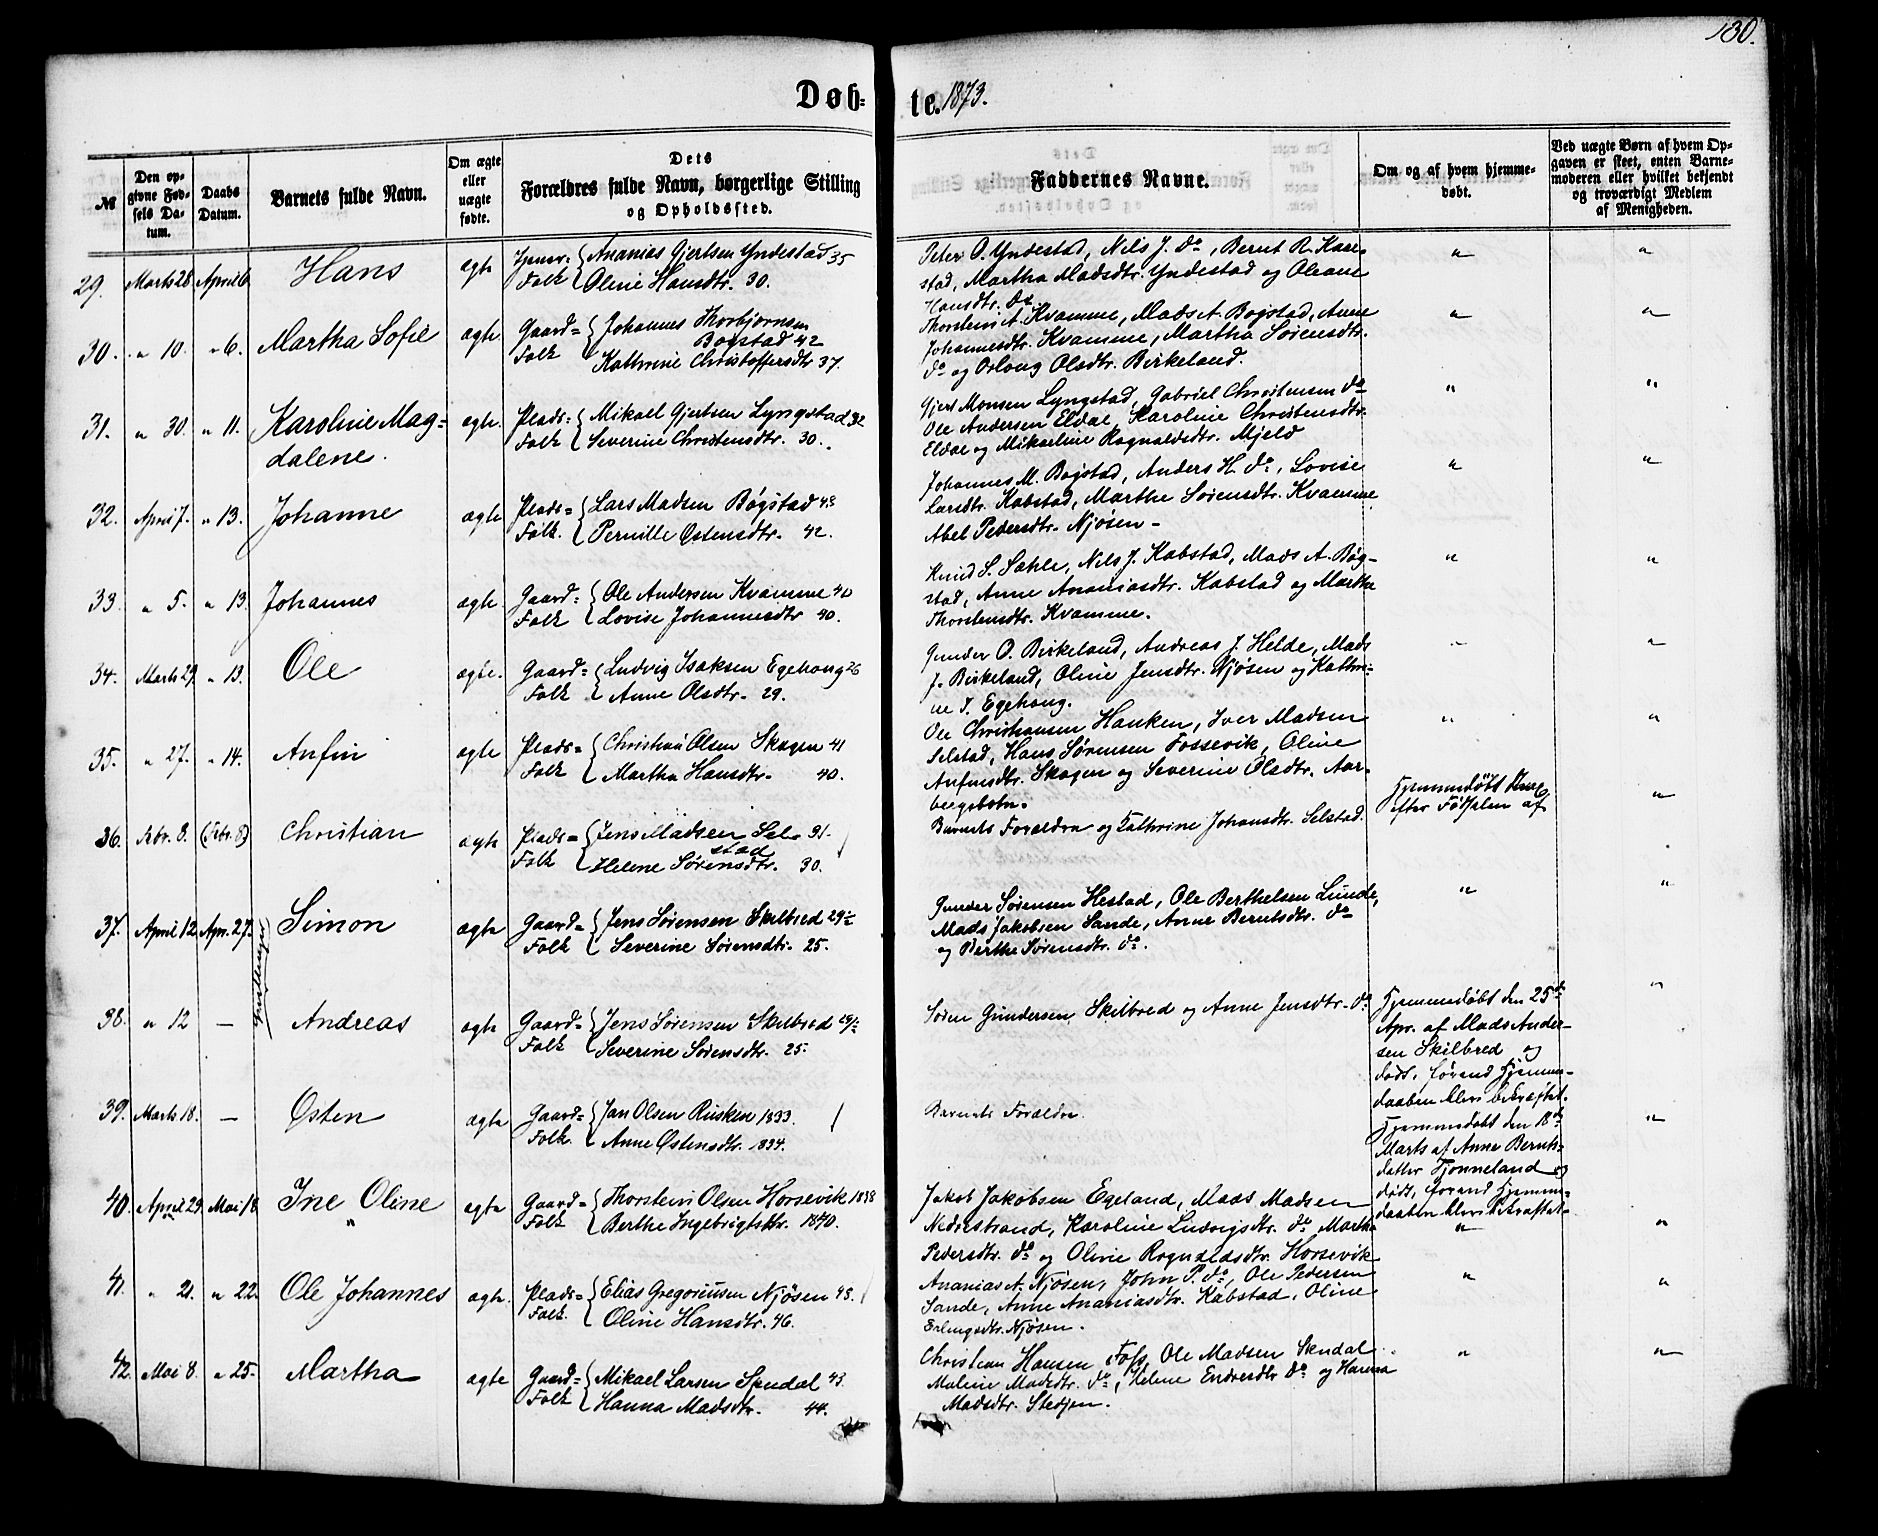 130.
Døb-te. 1873.
№
Den opgivne Fødsels Datum.
Daabs Datum.
Barnets fulde Navn.
Om ægte eller uægte fødte.
Dets Forældres fulde Navn, borgerlige Stilling og Opholdssted.
Faddernes Navne.
Om og af hvem hjemmedøbt.
Ved uægte Børn af hvem Opgaven er skeet, enten Barnemoderen eller hvilket bekjendt og troværdigt Medlem af Menigheden.
29. Marts 28 April 6 Hans ægte
Folk Ananias Gjertsen Yndestad 35
Oline Hansdtr. 30.
Peter O. Yndestad, Nils J. do, Bernt R. Kare-
stad, Martha Madsdtr. Yndestad og Oleane
Hansdtr. do
30. " 10. " 6. Martha Sofie ægte
Gaard= Folk Johannes Thorbjørnsen
Bogstad 42
Kathrine Christoffersdtr 37.
Thorstein A. Kvamme, Mads A. Bogstad, Anne
Johannesdtr. Kvamme, Martha Sørensdtr.
do og Oslaug Olsdtr. Birkeland.
31. " 30. " 11. Karoline Mag=
dalene. ægte
Plads= Folk Mikael Gjertsen Lyngstad 32
Severine Christensdtr. 30.
Gjert Monsen Lyngstad, Gabriel Christensen do
Ole Andersen Eldal, Karoline Christensdtr.
Eldal og Mikaeline Rognaldsdtr. Mjeld
32. April 7. " 13. Johanne ægte
Plads= Folk. Lars Madsen Bøgstad 43
Pernille Østensdtr. 42.
Johannes M. Bogstad, Anders H. do, Lovise
Larsdtr. Kabstad, Marthe Sørensdtr. Kvamme
Abel Pedersdtr. Njøsen -
33. " 5. " 13. Johannes ægte
Gaard= Folk Ole Andersen Kvamme 40
Lovise Johannesdtr 40.
Knud S. Sæhle, Nils J. Kabstad, Mads A. Bøg-
stad, Anne Ananiasdtr. Kabstad og Martha
Thorstensdtr. Kvamme.
34. Marts 29. " 13. Ole ægte.
Gaard= Folk Ludvig Isaksen Egehaug 26
Anne Olsdtr. 29.
Gunder O. Birkeland, Andreas J. Helde, Mads
J. Birkeland, Oline Jensdtr. Njøsen og Kathri-
ne I. Egehaug.
35. " 27. " 14. Anfin ægte
Plads= Folk Christian Olsen Skogen 41
Martha Hansdtr. 40.
Ole Christiansen Hauken, Iver Madsen
Selstad, Hans Sørensen Fossevik, Oline
Anfinsdtr. Skogen og Severine Olsdtr. Aar-
bergsbotn.
36. Febr. 8. (Febr. 8) Christian ægte
Plads= Folk Jens Madsen Sel-
stad 31.
Helene Sørensdtr. 30.
Barnets Forældre og Kathrine Johansdtr. Selstad.
Hjemmedøbt strax
efter Fødselen af
37. April 12 Apr. 27. Simon ægte
Tvillinger
Gaard= Folk Jens Sørensen Skilbred 29½
Severine Sørensdtr. 25.
Gunder Sørensen Hestad, Ole Berthelsen Lunde,
Mads Jakobsen Sande, Anne Berntsdtr. do
og Berthe Sørensdtr. do.
38. " 12 - Andreas ægte
Gaard= Folk Jens Sørensen Skilbred 29½
Severine Sørensdtr. 25.
Søren Gundersen Skilbred og Anne Jensdtr. do
Hjemmedøbt den 25de
Apr. af Mads Ander-
sen Skilbred og
død, førend Hjemme-
daaben blev bekræftet.
39. Marts 18. - Østen ægte
Gaard= Folk. Jan Olsen Rusken 1833.
Anne Østensdtr. 1834.
Barnets Forældre.
Hjemmedøbt den 18de
Marts af Anne Bernts-
datter Tjønneland og
død, førend Hjemme-
daaben blev bekræftet.
40. April 29. Mai 18. Ine Oline ægte
Gaard= Folk Thorstein Olsen Horsevik 1838
Berthe Ingebrigtsdtr. 1840.
Jakob Jakobsen Egeland, Mads Madsen
Nederstrand, Karoline Ludvigsdtr. do, Marth-
Pedersdtr. do og Olivie Rognaldsdtr. Horsevik
41. " 21. " 22. Ole Johannes ægte.
Plads= Folk. Elias Gregoriusen Njøsen 48.
Oline Hansdtr. 46.
Ananias A. Njøsen, John P. do, Ole Pedersen
Sande, Anne Ananiasdtr. Kabstad, Oline
Erlingsdtr. Njøsen.
42. Mai 8. " 25. Martha ægte
Gaard= Folk Mikael Larsen Sendal 43.
Hanna Madsdtr. 44.
Christian Hansen Foss, Ole Madsen Sendal
Malene Madsdtr. do, Helene Endresdtr do og Hanna
Madsdtr. Stedjen.